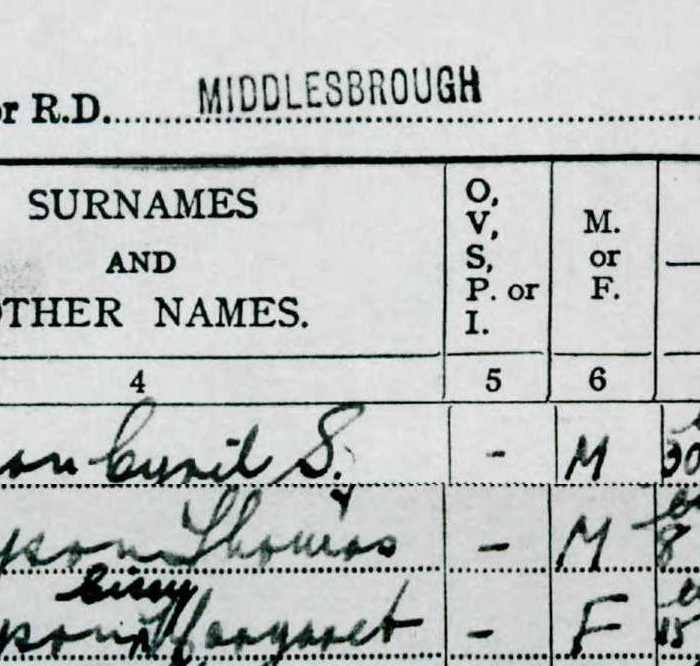 or R.D. MIDDLESBROUGH
SURNAMES
AND
OTHER NAMES.
O,
V,
S,
P. or
I.
M.
or
F.
4 5 6
Cyril S. - M 30
Thomas - M 8
Cissy
Margaret - F 15